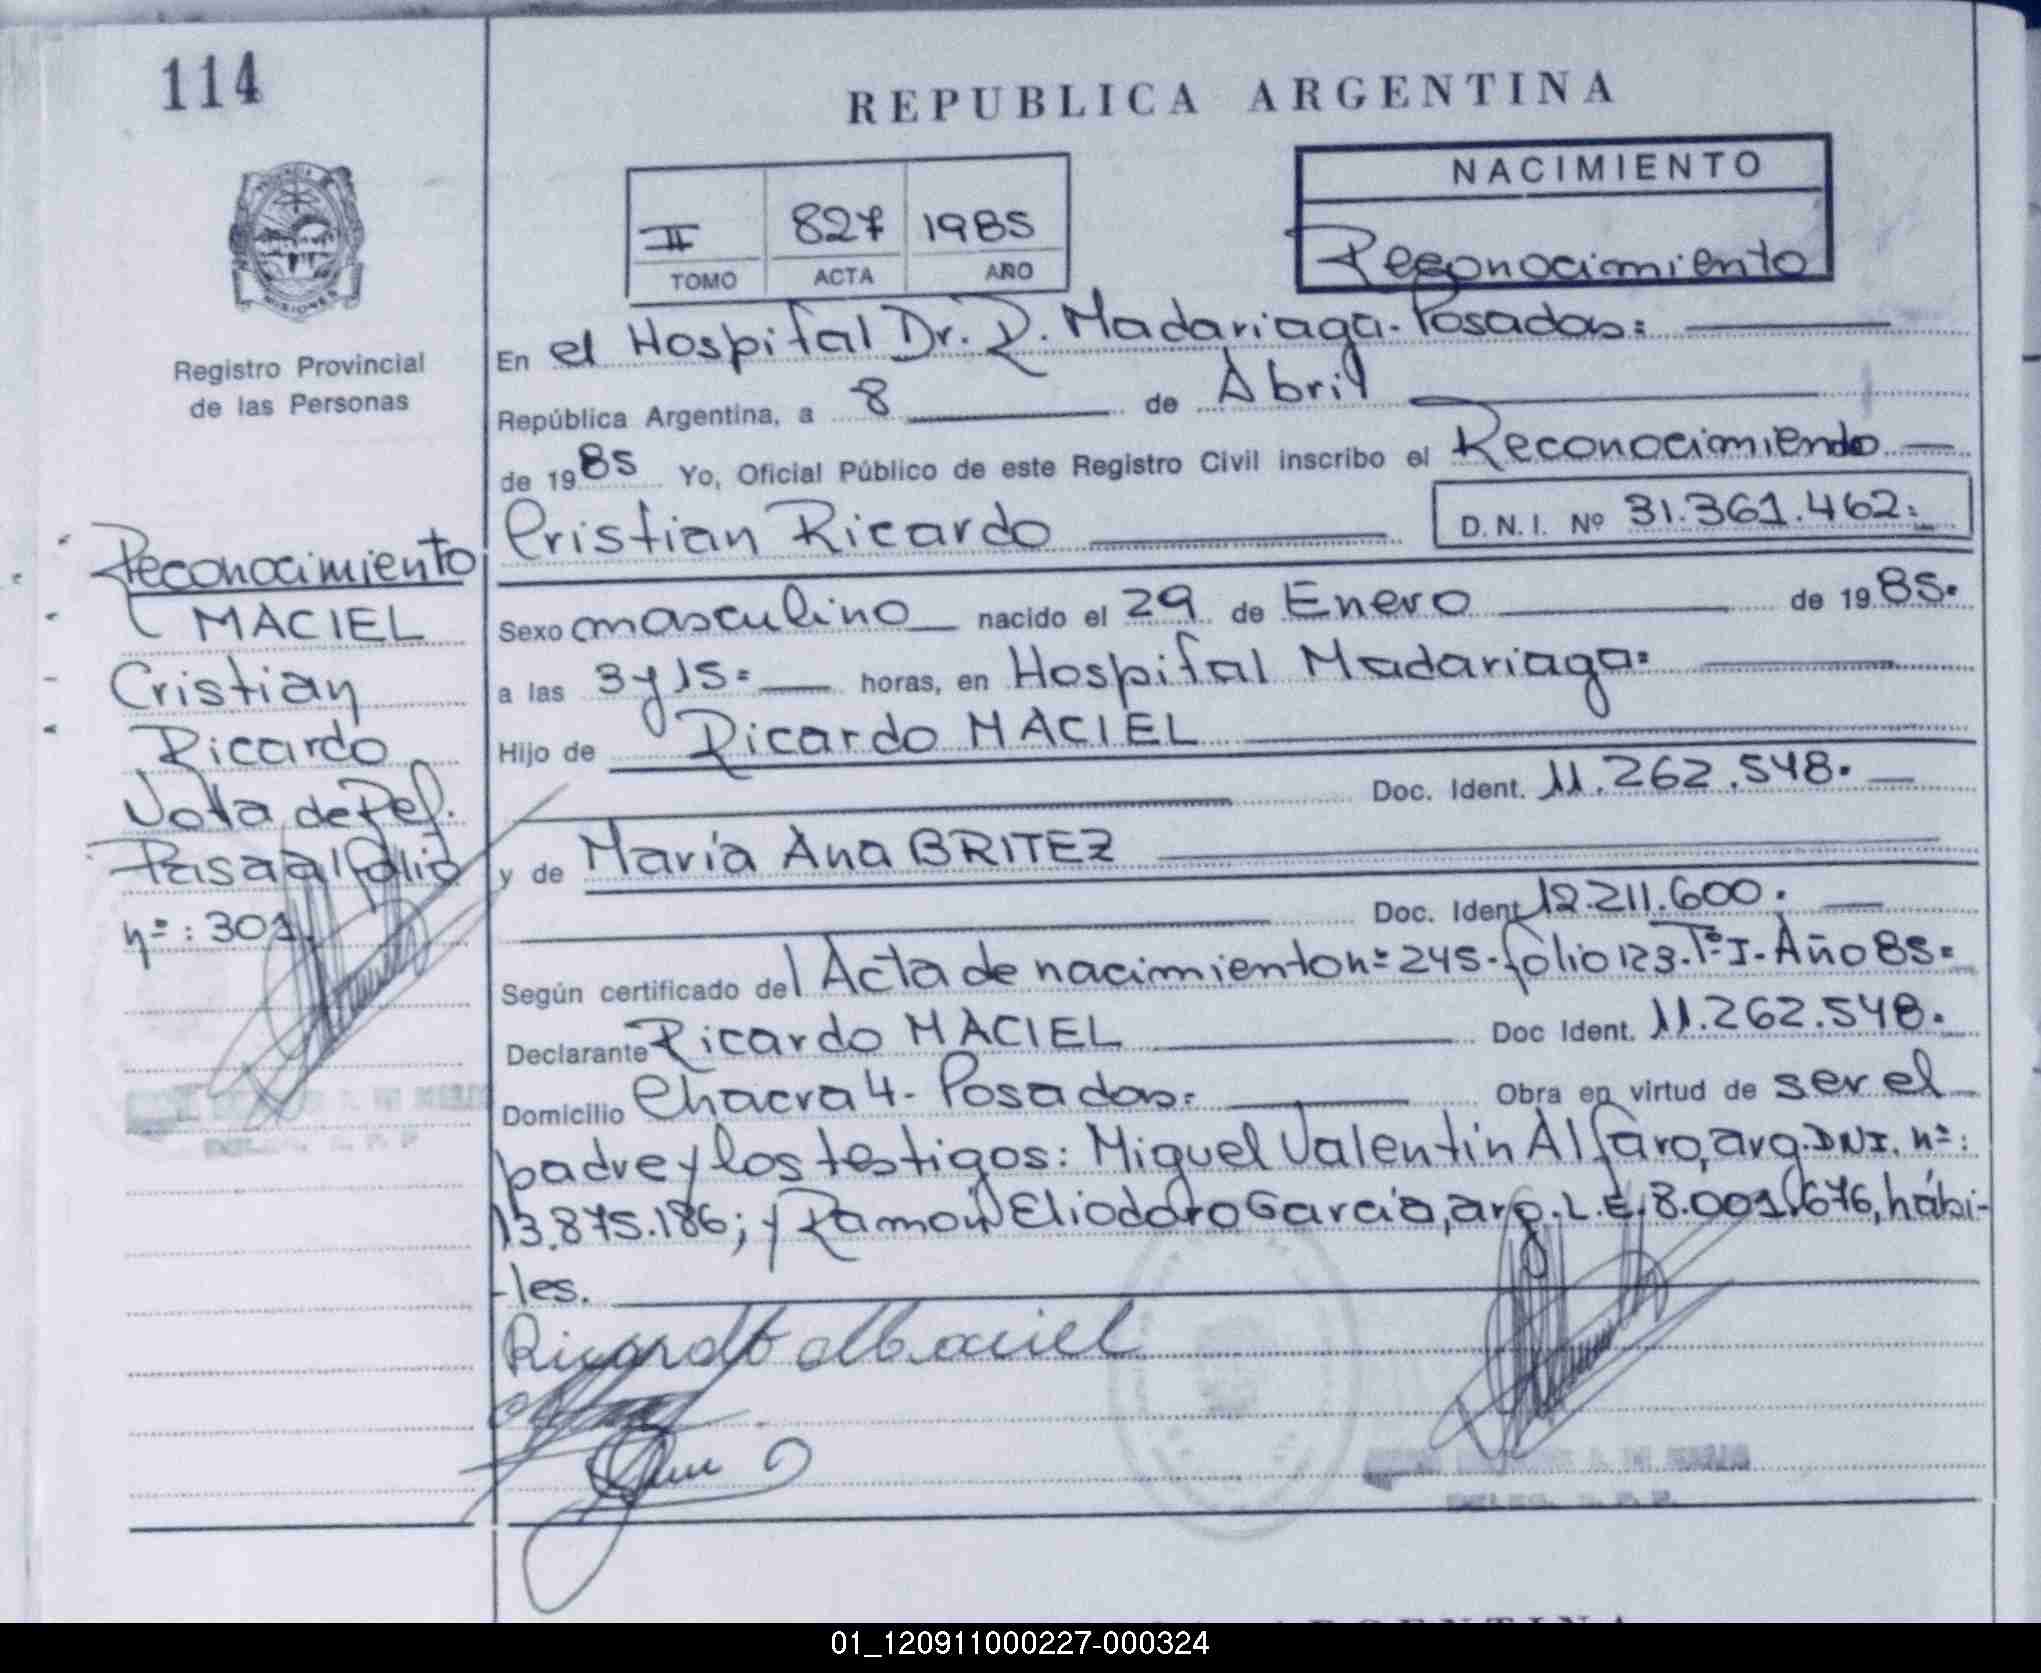 114
REPUBLICA ARGENTINA
NACIMIENTO
Reconocimiento
II 827 1985
TOMO ACTA AÑO
MISIONES
Registro Provincial
de las Personas
Reconocimiento
MACIEL
Cristian
Ricardo
Nota de Ref.
Pasa al folio
nº: 301.
En el Hospital Dr. R. Madariaga. Posadas:
República Argentina, a 8 de Abril
de 1985 Yo, Oficial Público de este Registro Civil inscribo el Reconocimiendo
Cristian Ricardo D.N.I. Nº 31.361.462.
Sexo masculino nacido el 29 de Enero de 1985.
a las 3 y 15= horas, en Hospital Madariaga=
Hijo de Ricardo MACIEL
Doc. Ident. 11.262.548.
y de María Ana BRITEZ
Doc. Ident. 12.211.600.
Según certificado del Acta de nacimiento nº 245. folio 123. Tº I. Año 85=
Declarante Ricardo MACIEL Doc Ident. 11.262.548.
Domicilio Chacra 4. Posadas: Obra en virtud de ser el
padre y los testigos: Miguel Valentín Alfaro, arg. DNI. nº:
13.875.186; y Ramón Eliodoro Garcia, arg. L.E. 8.001.676, hábi-
-les.
Ricardo Maciel
01_120911000227-000324